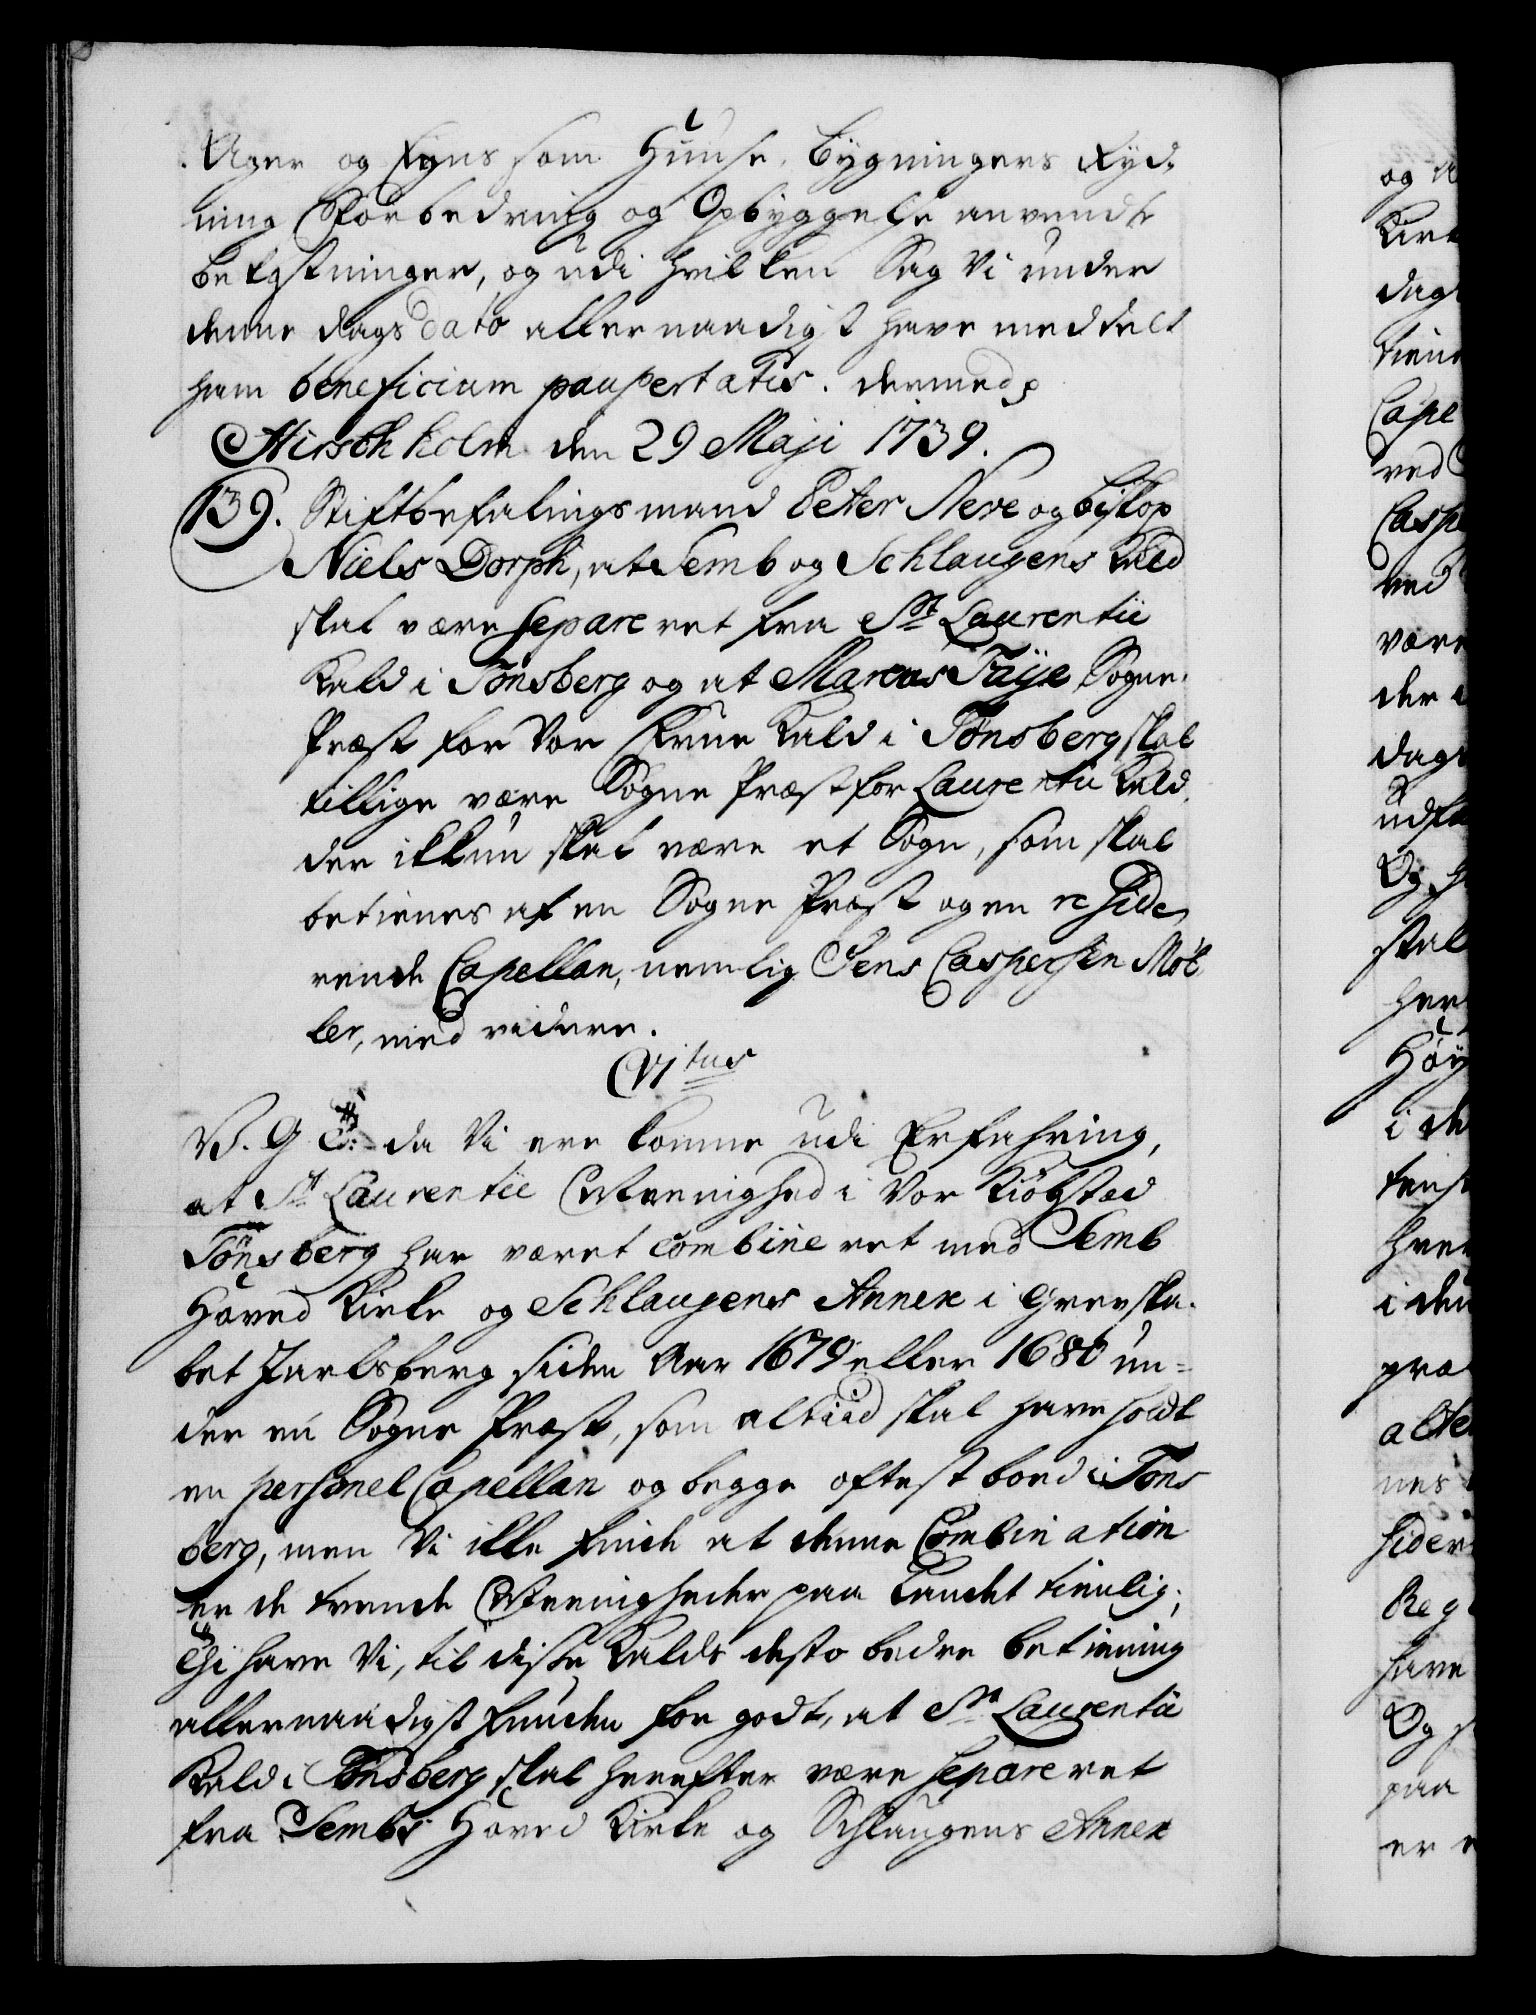 Ager og Engs som Huuse, bygningers Ryd-
ning Forbedring og Opbyggelse anvendte
bekostninger, og udi hvilken Sag Vi under
denne dags dato allernaadigst have meddelt
ham beneficium paupertatis. dermed p
Hirschholm den 29 Maji 1739.
139. Stiftbefalingsmand Peter Neve og Biskop
Niels Dorph, at Semb og Schlaugens Kald
skal være separeret fra St. Laurentii
Kald i Tønsberg og at Marcus Faÿe Sogne-
Præst for Vor Frue Kald i Tønsberg skal
tillige være Sogne Præst for Laurentii Kald
der ikkun skal være et Sogn, som skal
betienes af en Sogne Præst og en reside-
rende Capellan, nemlig Jens Caspersen Møl-
ler, med videre.
Vitus
V. G T: da Vi ere komne udi Erfahring,
at St. Laurentii Meenighed i Vor Kiøbstæd
Tønsberg har været combineret med Semb
Hoved Kirke og Schlaugens Annex i Grevska-
bet Jarlsberg siden Aar 1679 eller 1680 un-
der en Sogne Præst, som altiid skal have holdt
en personel Capellan og begge oftest boed i Tøns
berg, men Vi ikke finde at denne Combination
er de trende Meenigheder paa Landet tienlig;
Thi have Vi, til disse Kalds desto bedre betiening
allernaadigst funden for godt, at St. Laurentii
Kald i Tønsberg skal herefter være separeret
fra Sembs Hoved Kirke og Schlaugens Annex